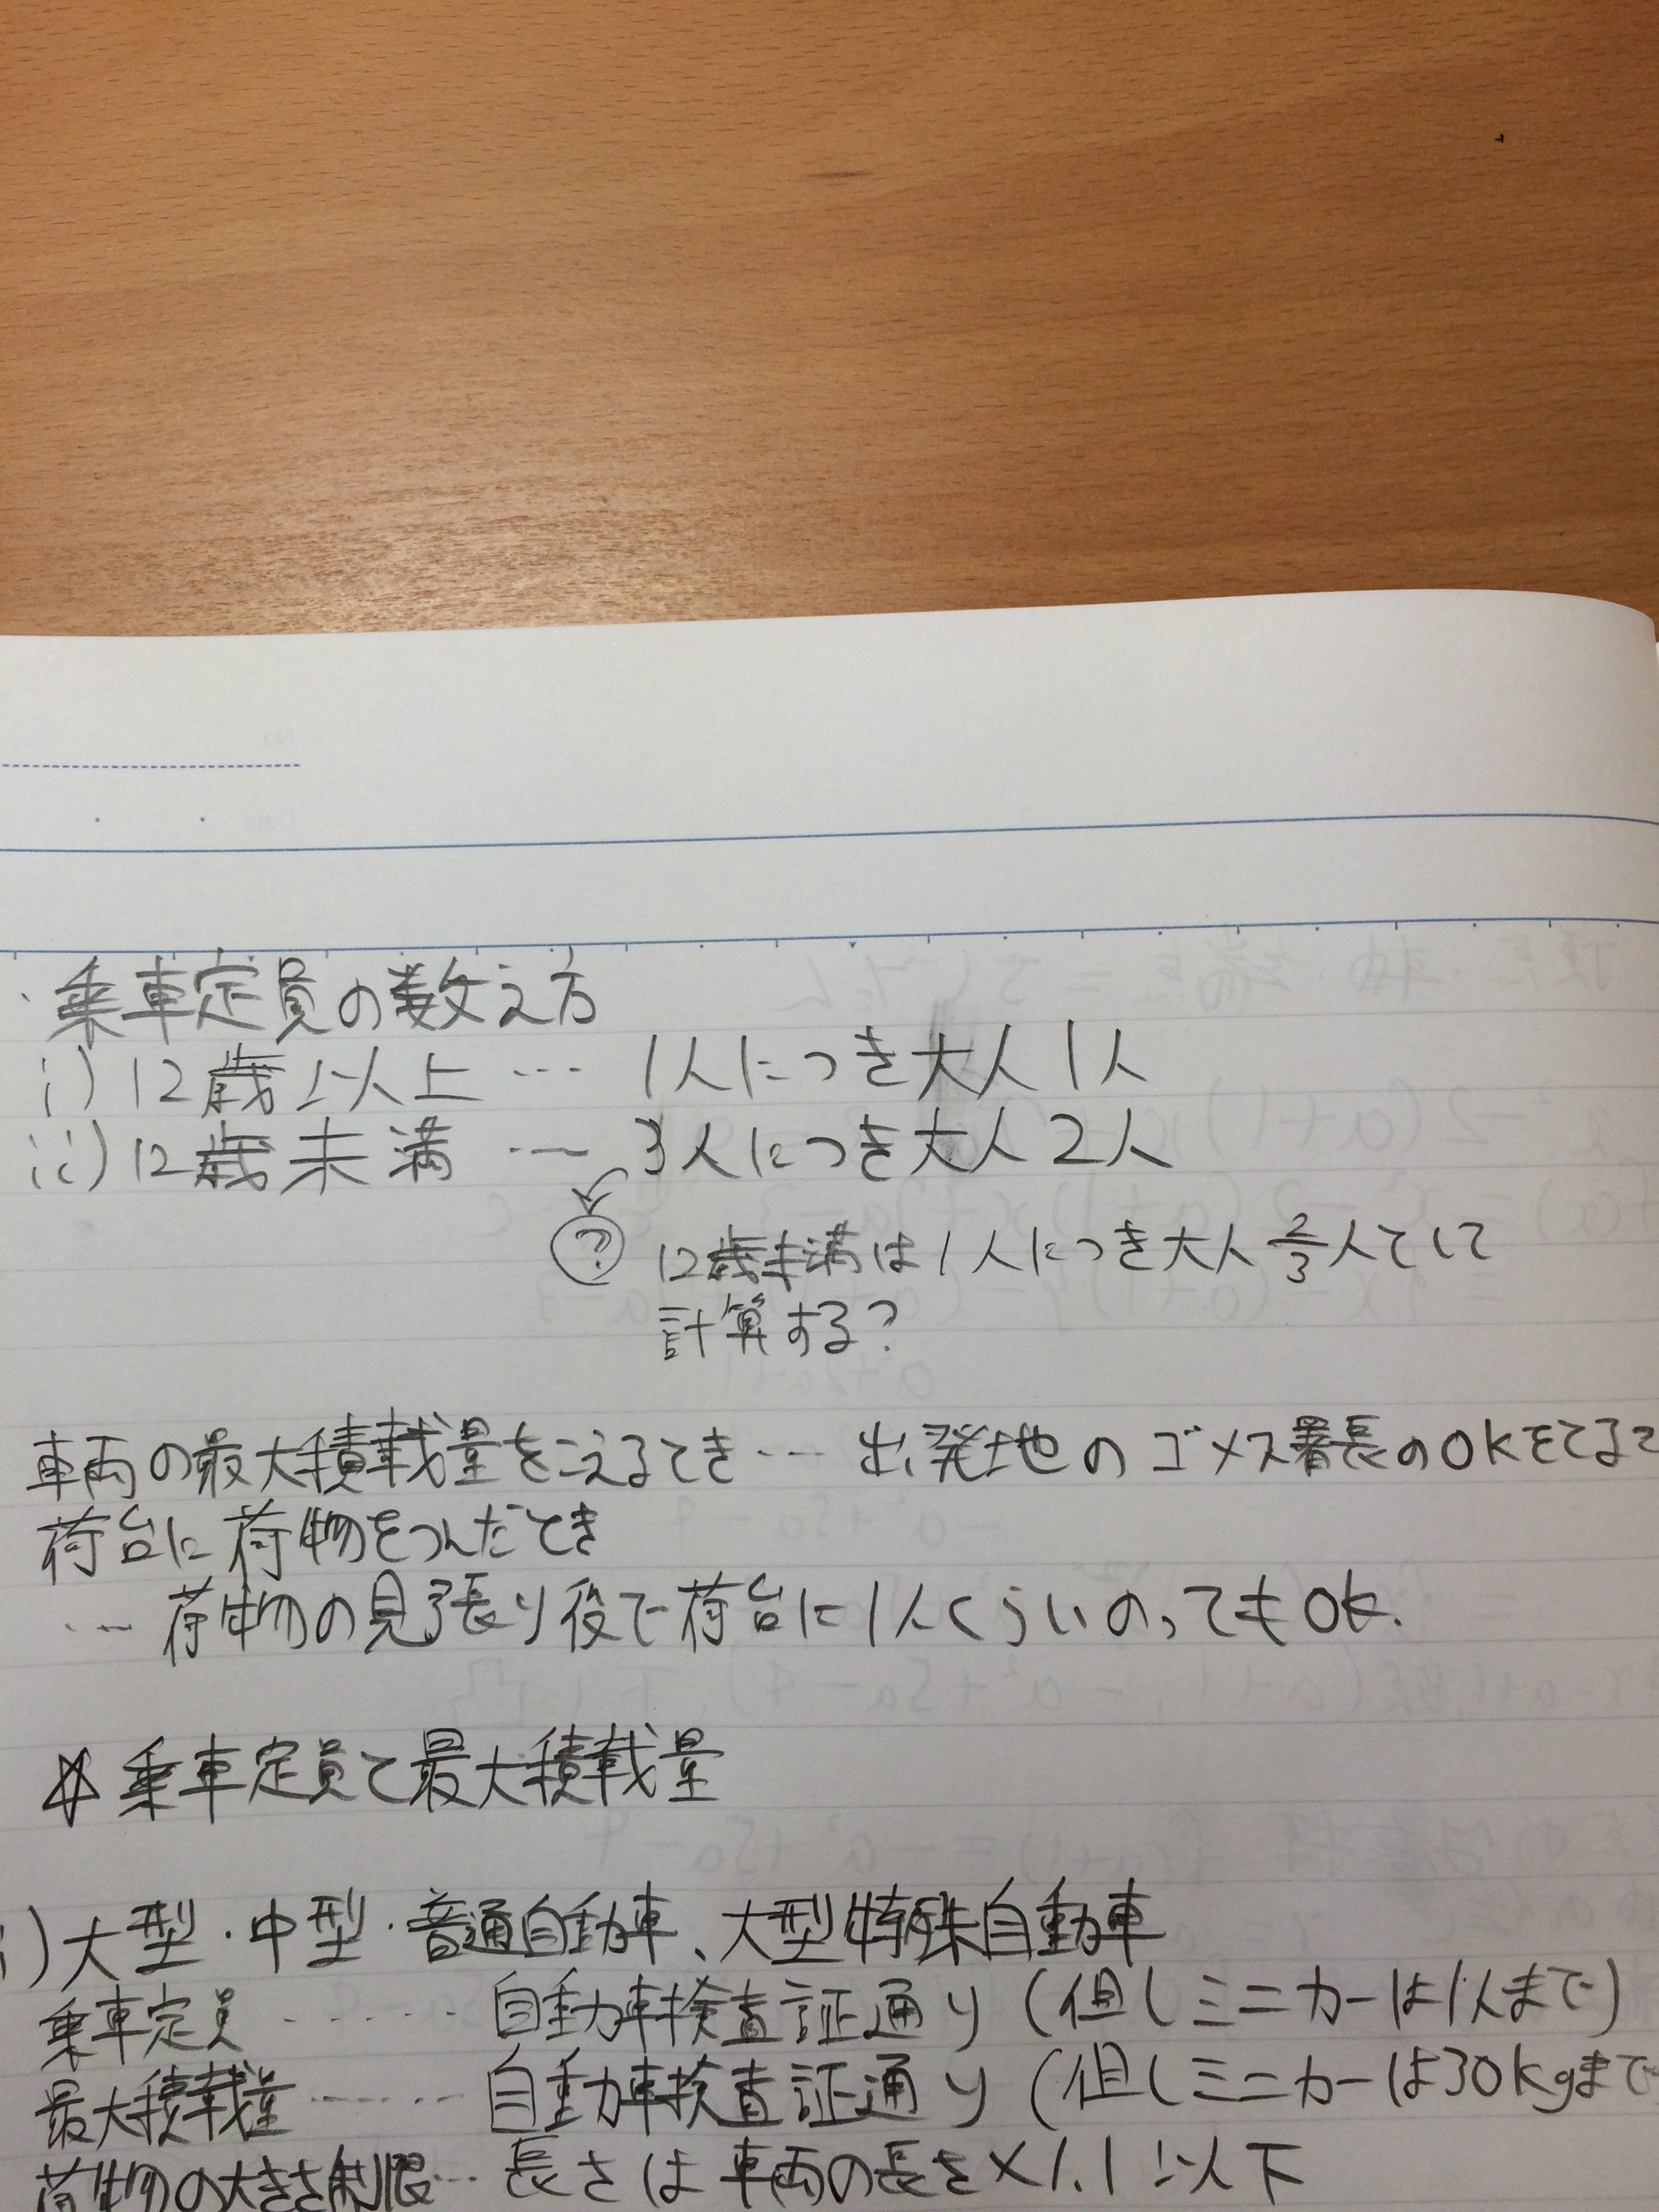 ・乗車定員の数え方
i) 12歳以上 … 1人につき大人1人
ii) 12歳未満 … 3人につき大人2人
? 12歳未満は1人につき大人2/3人として
計算する?
車両の最大積載量をこえるとき … 出発地のゴメス署長のOKをとる
荷台に荷物をつんだとき
… 荷物の見張り役で荷台に1人くらいのってもOK.
☆乗車定員と最大積載量
i) 大型・中型・普通自動車、大型特殊自動車
乗車定員 …… 自動車検査証通り (但しミニカーは1人まで)
最大積載量 …… 自動車検査証通り (但しミニカーは30kgまで
荷物の大きさ制限 … 長さは車両の長さ×1.1以下